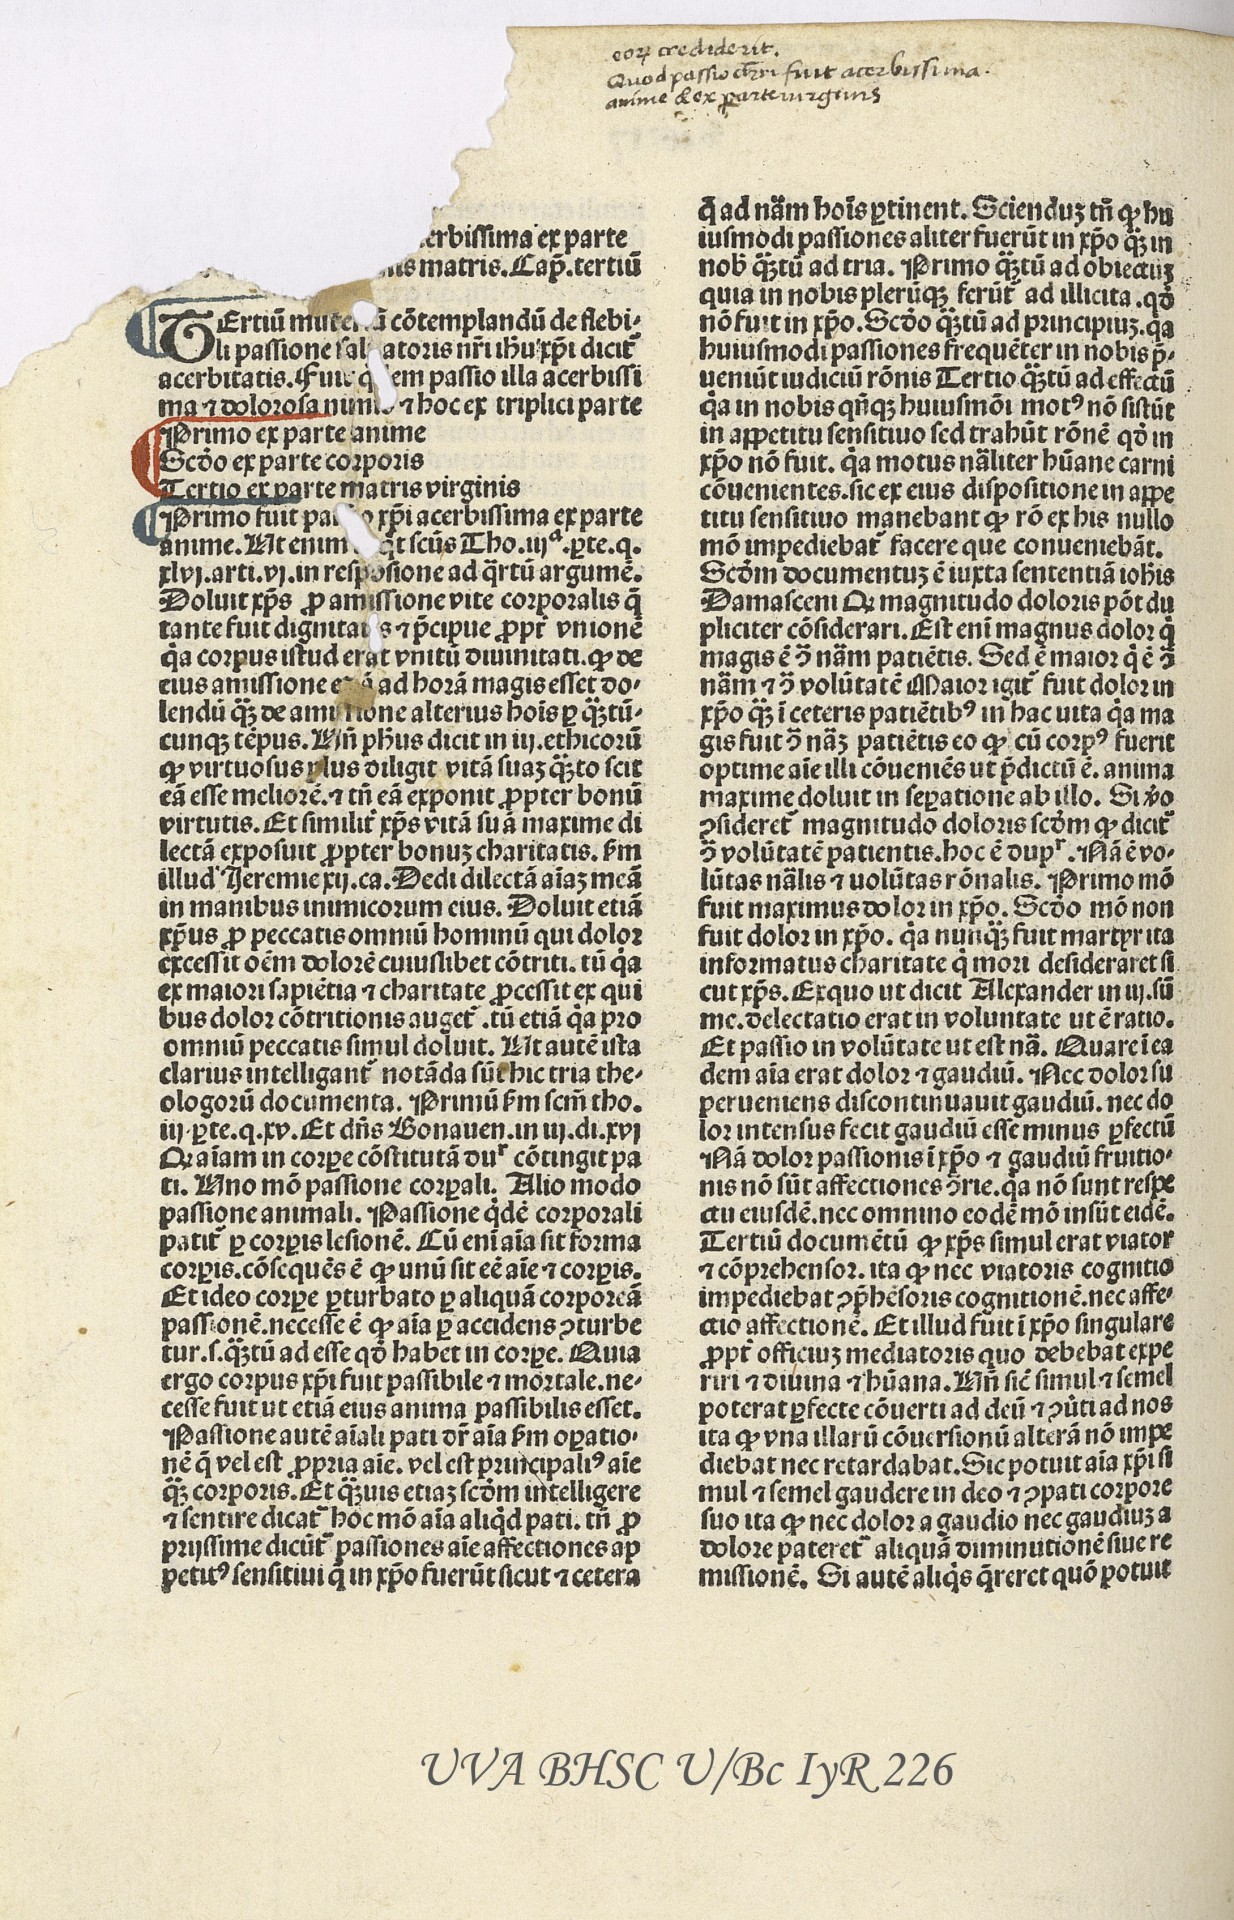 eoꝝ crediderit.
Quod passio chri fuit acerbissima.
anime & ex ꝑarte virginis
erbissima ex parte
nis matris. Cap̄. tertiū
TErtiū mūteriū cōtemplandū de flebi-
li passione saluatoris nr̄i ihu xp̄i dicit᷑
acerbitatis. Fuit quidem passio illa acerbissi
ma ⁊ dolorosa nimis ⁊ hoc ex triplici parte
Primo ex parte anime
Scd̄o ex parte corporis
Tertio ex parte matris virginis
Primo fuit passio xp̄i acerbissima ex parte
anime. Ut enim inq̇t scūs Tho. iijᵃ. ꝑte. q.
xlvj. arti. vj. in responsione ad q̈rtū argumē.
Doluit xp̄s ꝓ amissione vite corporalis q̄
tante fuit dignitatis ⁊ p̄cipue ꝓpt᷑ vnionē
q̇a corpus istud erat vnitū diuinitati. ꝙ de
eius amissione etiā ad horā magis esset do-
lendū q̈ꝫ de amissione alterius hoīs ꝑ q̈ꝫtū-
cunqꝫ tēpus. Un̄ ph̄us dicit in iij. ethicorū
ꝙ virtuosus plus diligit vitā suaꝫ q̈ꝫto scit
eā esse meliorē. ⁊ tn̄ eā exponit ꝓpter bonū
virtutis. Et similit᷑ xp̄s vitā suā maxime di
lectā exposuit ꝓpter bonuꝫ charitatis. ẜm
illud Jeremie xij. ca. Dedi dilectā aīaꝫ meā
in manibus inimicorum eius. Doluit etiā
xp̄us ꝓ peccatis omniū hominū qui dolor
excessit oēm dolorē cuiuslibet cōtriti. tū q̇a
ex maiori sapiētia ⁊ charitate ꝓcessit ex qui
bus dolor cōtritionis auget᷑. tū etiā q̇a pro
omniū peccatis simul doluit. Ut autē ista
clarius intelligant᷑ notāda sūt hic tria the-
ologorū documenta. Primū ẜm scm̄ tho.
iij ꝑte. q. xv. Et dn̄s Bonauen. in iij. di. xvj
Qꝫ aīam in corpe cōstitutā du᷑ cōtingit pa
ti. Uno mō passione corꝑali. Alio modo
passione animali. Passione q̇dē corporali
patit᷑ ꝑ corꝑis lesionē. Cū eni aīa sit forma
corꝑis. cōsequēs ē ꝙ unū sit eē aīe ⁊ corꝑis.
Et ideo corpe ꝑturbato ꝑ aliquā corporeā
passionē. necesse ē ꝙ aīa ꝑ accidens ꝯturbe
tur. s. q̈ꝫtū ad esse qd̄ habet in corpe. Quia
ergo corpus xp̄i fuit passibile ⁊ mortale. ne-
cesse fuit ut etiā eius anima passibilis esset.
Passione autē aīali pati dr̄ aīa ẜm oꝑatio-
nē q̄ vel est ꝓpria aīe. vel est principaliꝰ aīe
q̈ꝫ corporis. Et q̈ꝫuis etiaꝫ scd̄m intelligere
⁊ sentire dicat᷑ hoc mō aīa aliq̇d pati. tn̄ ꝓ
prijssime dicūt᷑ passiones aīe affectiones ap
petitꝰ sensitiui q̄ in xp̄o fuerūt sicut ⁊ cetera
q̄ ad nām hoīs ꝑtinent. Sciendum tn̄ ꝙ hu
iusmodi passiones aliter fuerūt in xp̄o q̈ꝫ in
nob̄ q̈ꝫtū ad tria. Primo q̈ꝫtū ad obiectuꝫ
quia in nobis plerūqꝫ ferūt᷑ ad illicita. qd̄
nō fuit in xp̄o. Scd̄o q̈ꝫtū ad principiuꝫ. q̇a
huiusmodi passiones frequēter in nobis p̄-
ueniūt iudiciū rōnis Tertio q̈ꝫtū ad effectū
q̇a in nobis qn̄qꝫ huiusmōi motꝰ nō sistūt
in appetitu sensitiuo sed trahūt rōnē qd̄ in
xp̄o nō fuit. q̇a motus nāliter hūane carni
cōuenientes. sic ex eius dispositione in appe
titu sensitiuo manebant ꝙ rō ex his nullo
mō impediebat᷑ facere que conueniebāt.
Scd̄m documentuꝫ ē iuxta sententiā iohīs
Damasceni Qꝫ magnitudo doloris pōt du
pliciter cōsiderari. Est eni magnus dolor q̇
magis ē ꝯ̄ nām patiētis. Sed ē maior q̇ ē ꝯ̄
nām ⁊ ꝯ̄ volūtatē Maior igit᷑ fuit dolor in
xp̄o q̈ꝫ ī ceteris patiētibꝰ in hac uita q̇a ma
gis fuit ꝯ̄ nāꝫ patiētis eo ꝙ cū corpꝰ fuerit
optime aīe illi cōueniēs ut p̄dictū ē. anima
maxime doluit in seꝑatione ab illo. Si v̄o
ꝯsideret᷑ magnitudo doloris scd̄m ꝙ dicit᷑
ꝯ̄ volūtatē patientis. hoc ē dup᷑. Nā ē vo-
lūtas nālis ⁊ uolūtas rōnalis. Primo mō
fuit maximus dolor in xp̄o. Scd̄o mō non
fuit dolor in xp̄o. q̇a nunq̈ꝫ fuit martyr ita
informatus charitate q̇ mori desideraret si
cut xp̄s. Exquo ut dicit Alexander in iij. sū
me. delectatio erat in voluntate ut ē ratio.
Et passio in volūtate ut est nā. Quare ī ea
dem aīa erat dolor ⁊ gaudiū. Nec dolor su
perueniens discontinuauit gaudiū. nec do
lor intensus fecit gaudiū esse minus ꝑfectū
Nā dolor passionis ī xp̄o ⁊ gaudiū fruitio-
nis nō sūt affectiones ꝯ̄rie. q̇a nō sunt respe
ctu eiusdē. nec omnino eodē mō insūt eidē.
Tertiū documētū ꝙ xp̄s simul erat viator
⁊ cōprehensor. ita ꝙ nec viatoris cognitio
impediebat ꝯp̄hēsoris cognitionē. nec affe-
ctio affectionē. Et illud fuit ī xp̄o singulare
ꝓpt᷑ officiuꝫ mediatoris quo debebat expe
riri ⁊ diuina ⁊ hūana. Un̄ sic̄ simul ⁊ semel
poterat ꝑfecte cōuerti ad deū ⁊ ꝯūti ad nos
ita ꝙ vna illarū cōuersionū alterā nō impe
diebat nec retardabat. Sic potuit aīa xp̄i si
mul ⁊ semel gaudere in deo ⁊ ꝯpati corpore
suo ita ꝙ nec dolor a gaudio nec gaudiuꝫ a
dolore pateret᷑ aliquā diminutionē siue re
missionē. Si autē aliq̇s q̄reret quō potuit
UVA BHSC U/Bc IyR 226